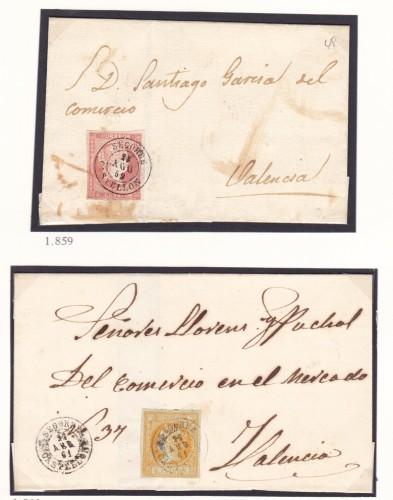 48
S. D. Santiago Garcia del
comercio
SEGORBE
28
AGO
59
CASTELLON
Valencia
1.859
Señores Llorens y Puchol
Del Comercio en el Mercado
SEGORBE
ABR
61
CASTELLON
37
Valencia